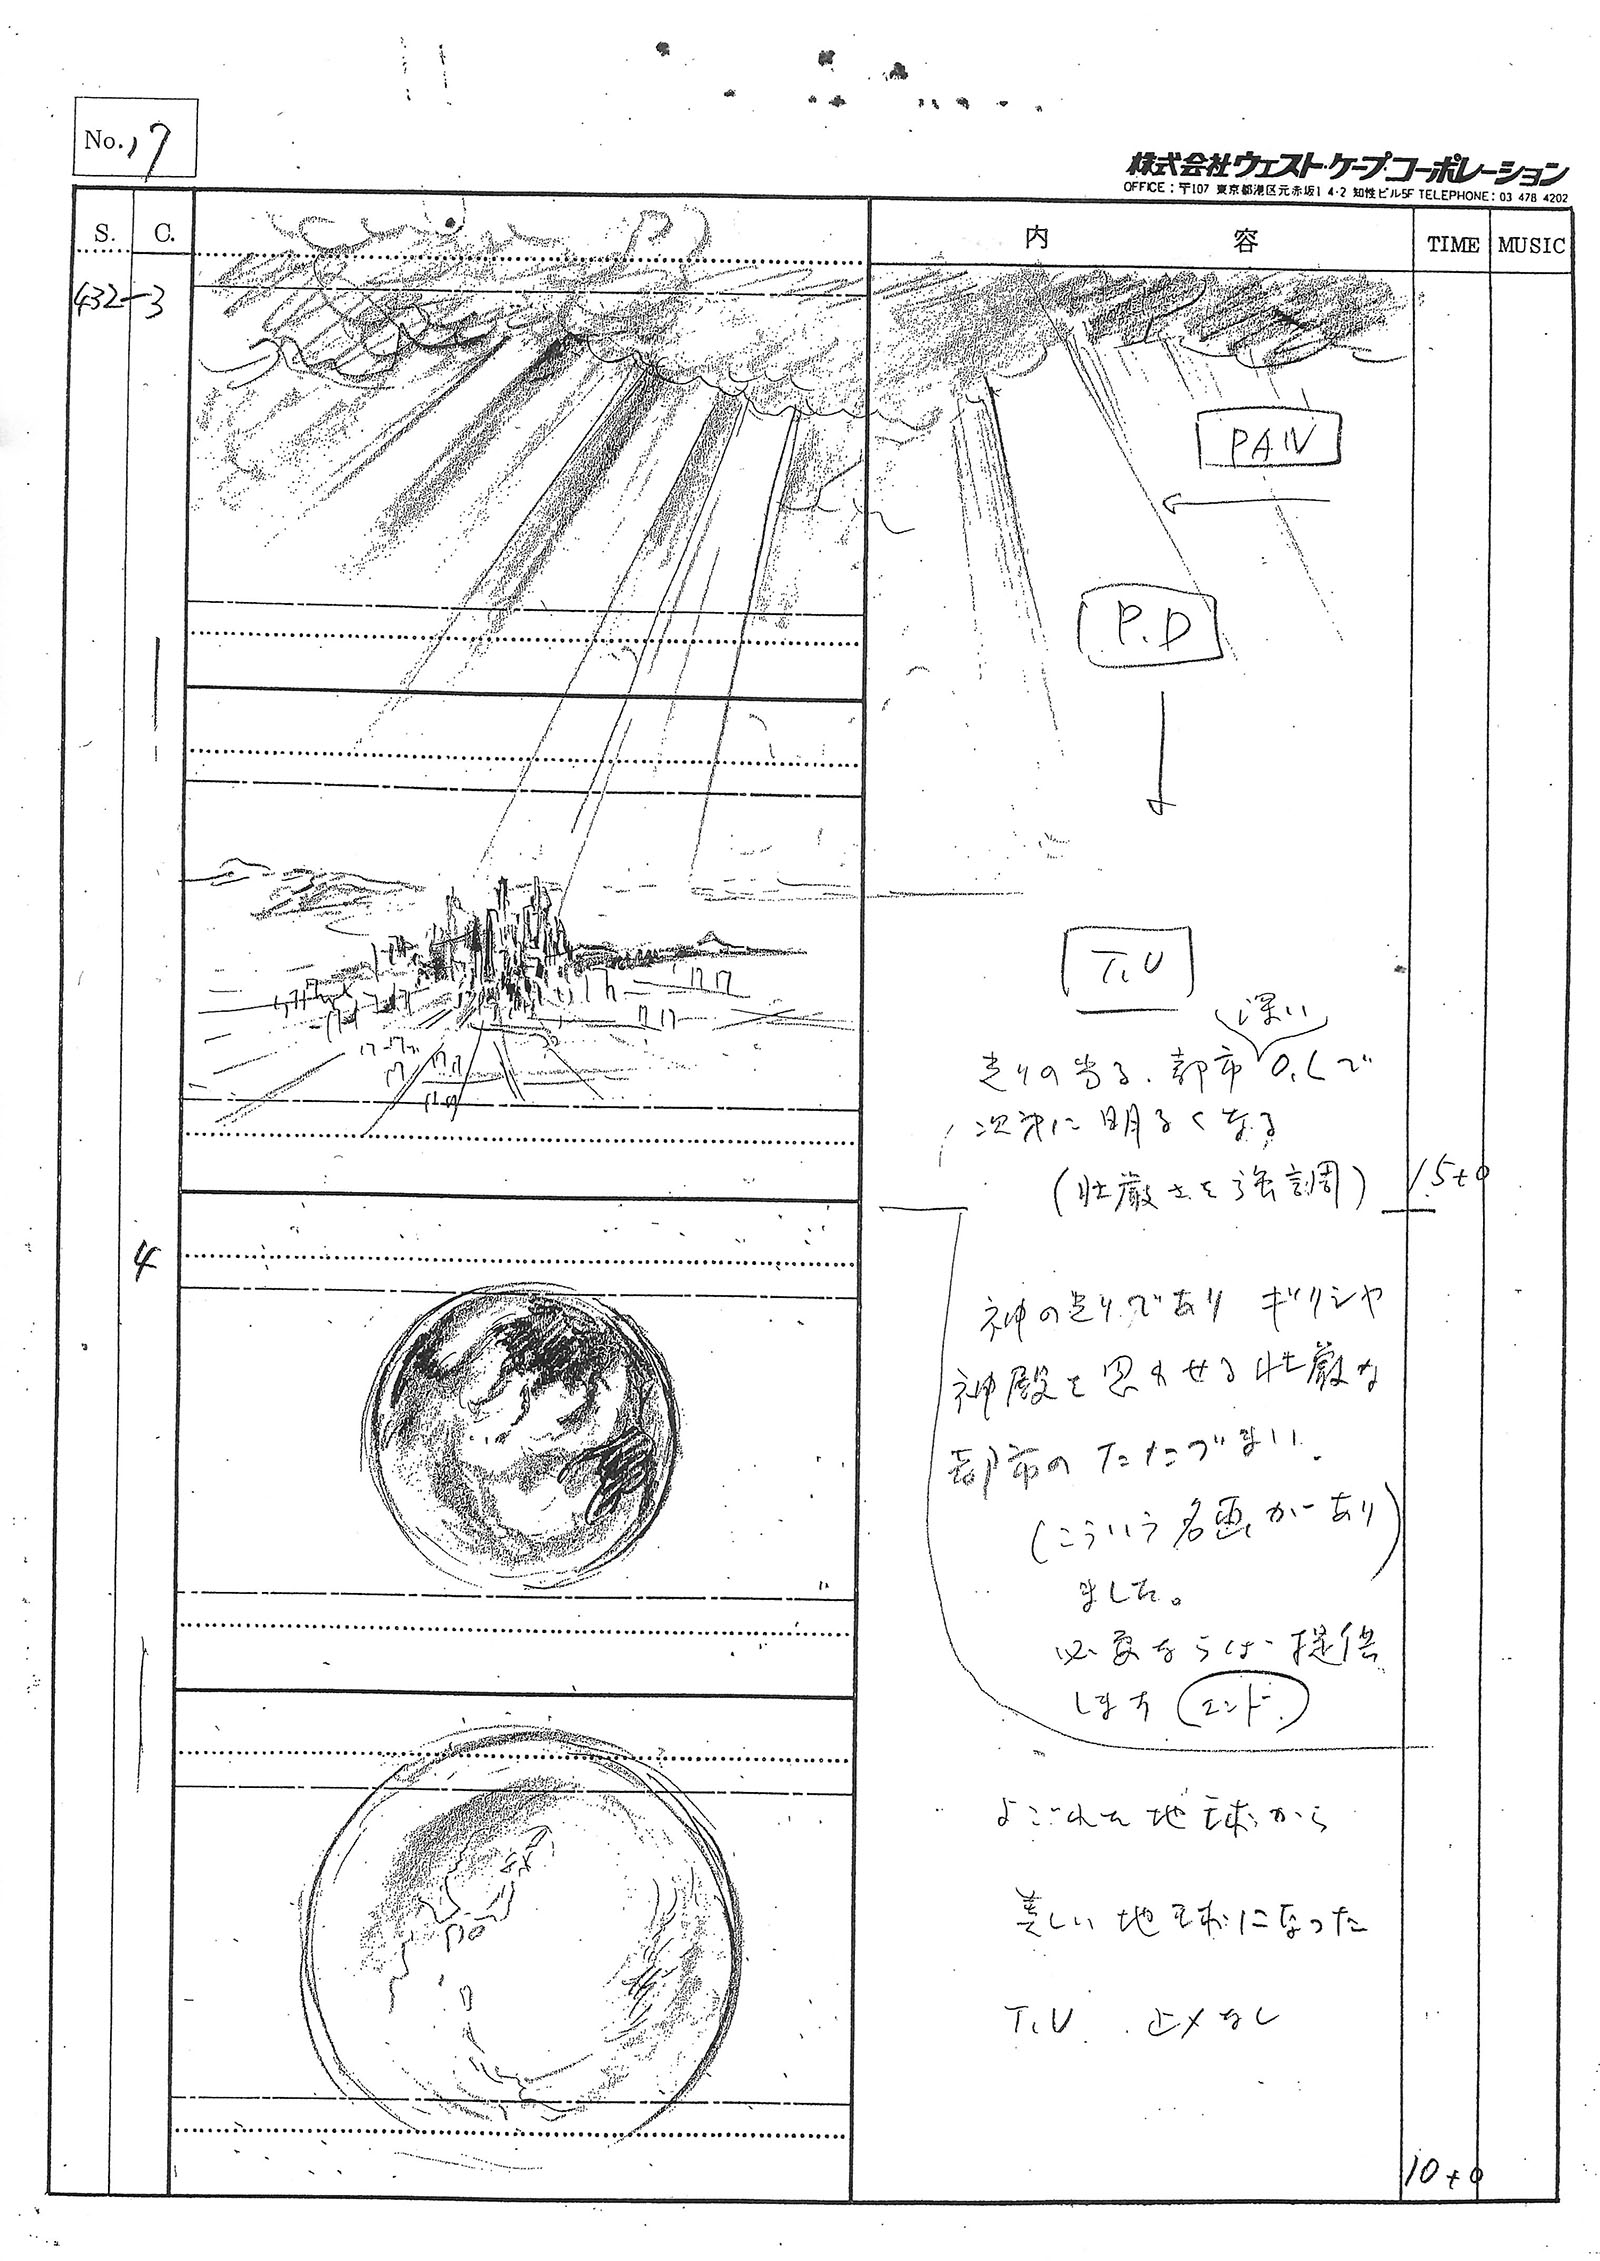 No. 17
株式会社ウェスト・ケープ・コーポレーション
OFFICE：〒107 東京都港区元赤坂1 4-2 知性ビル5F TELEPHONE：03 478 4202
S. C. 内容 TIME MUSIC
432-3
PAN
P.D
T.U
深い
光りの当る、都市 O.Lで
次第に明るくなる
(壮厳さを強調)
15+0
4
神の光りであり ギリシャ
神殿を思わせる壮厳な
都市のたたづまい。
(こういう名画があり
ました。
必要ならば提供
します エンド.)
よごれた地球から
美しい地球になった
T.U 止メなし
10+0